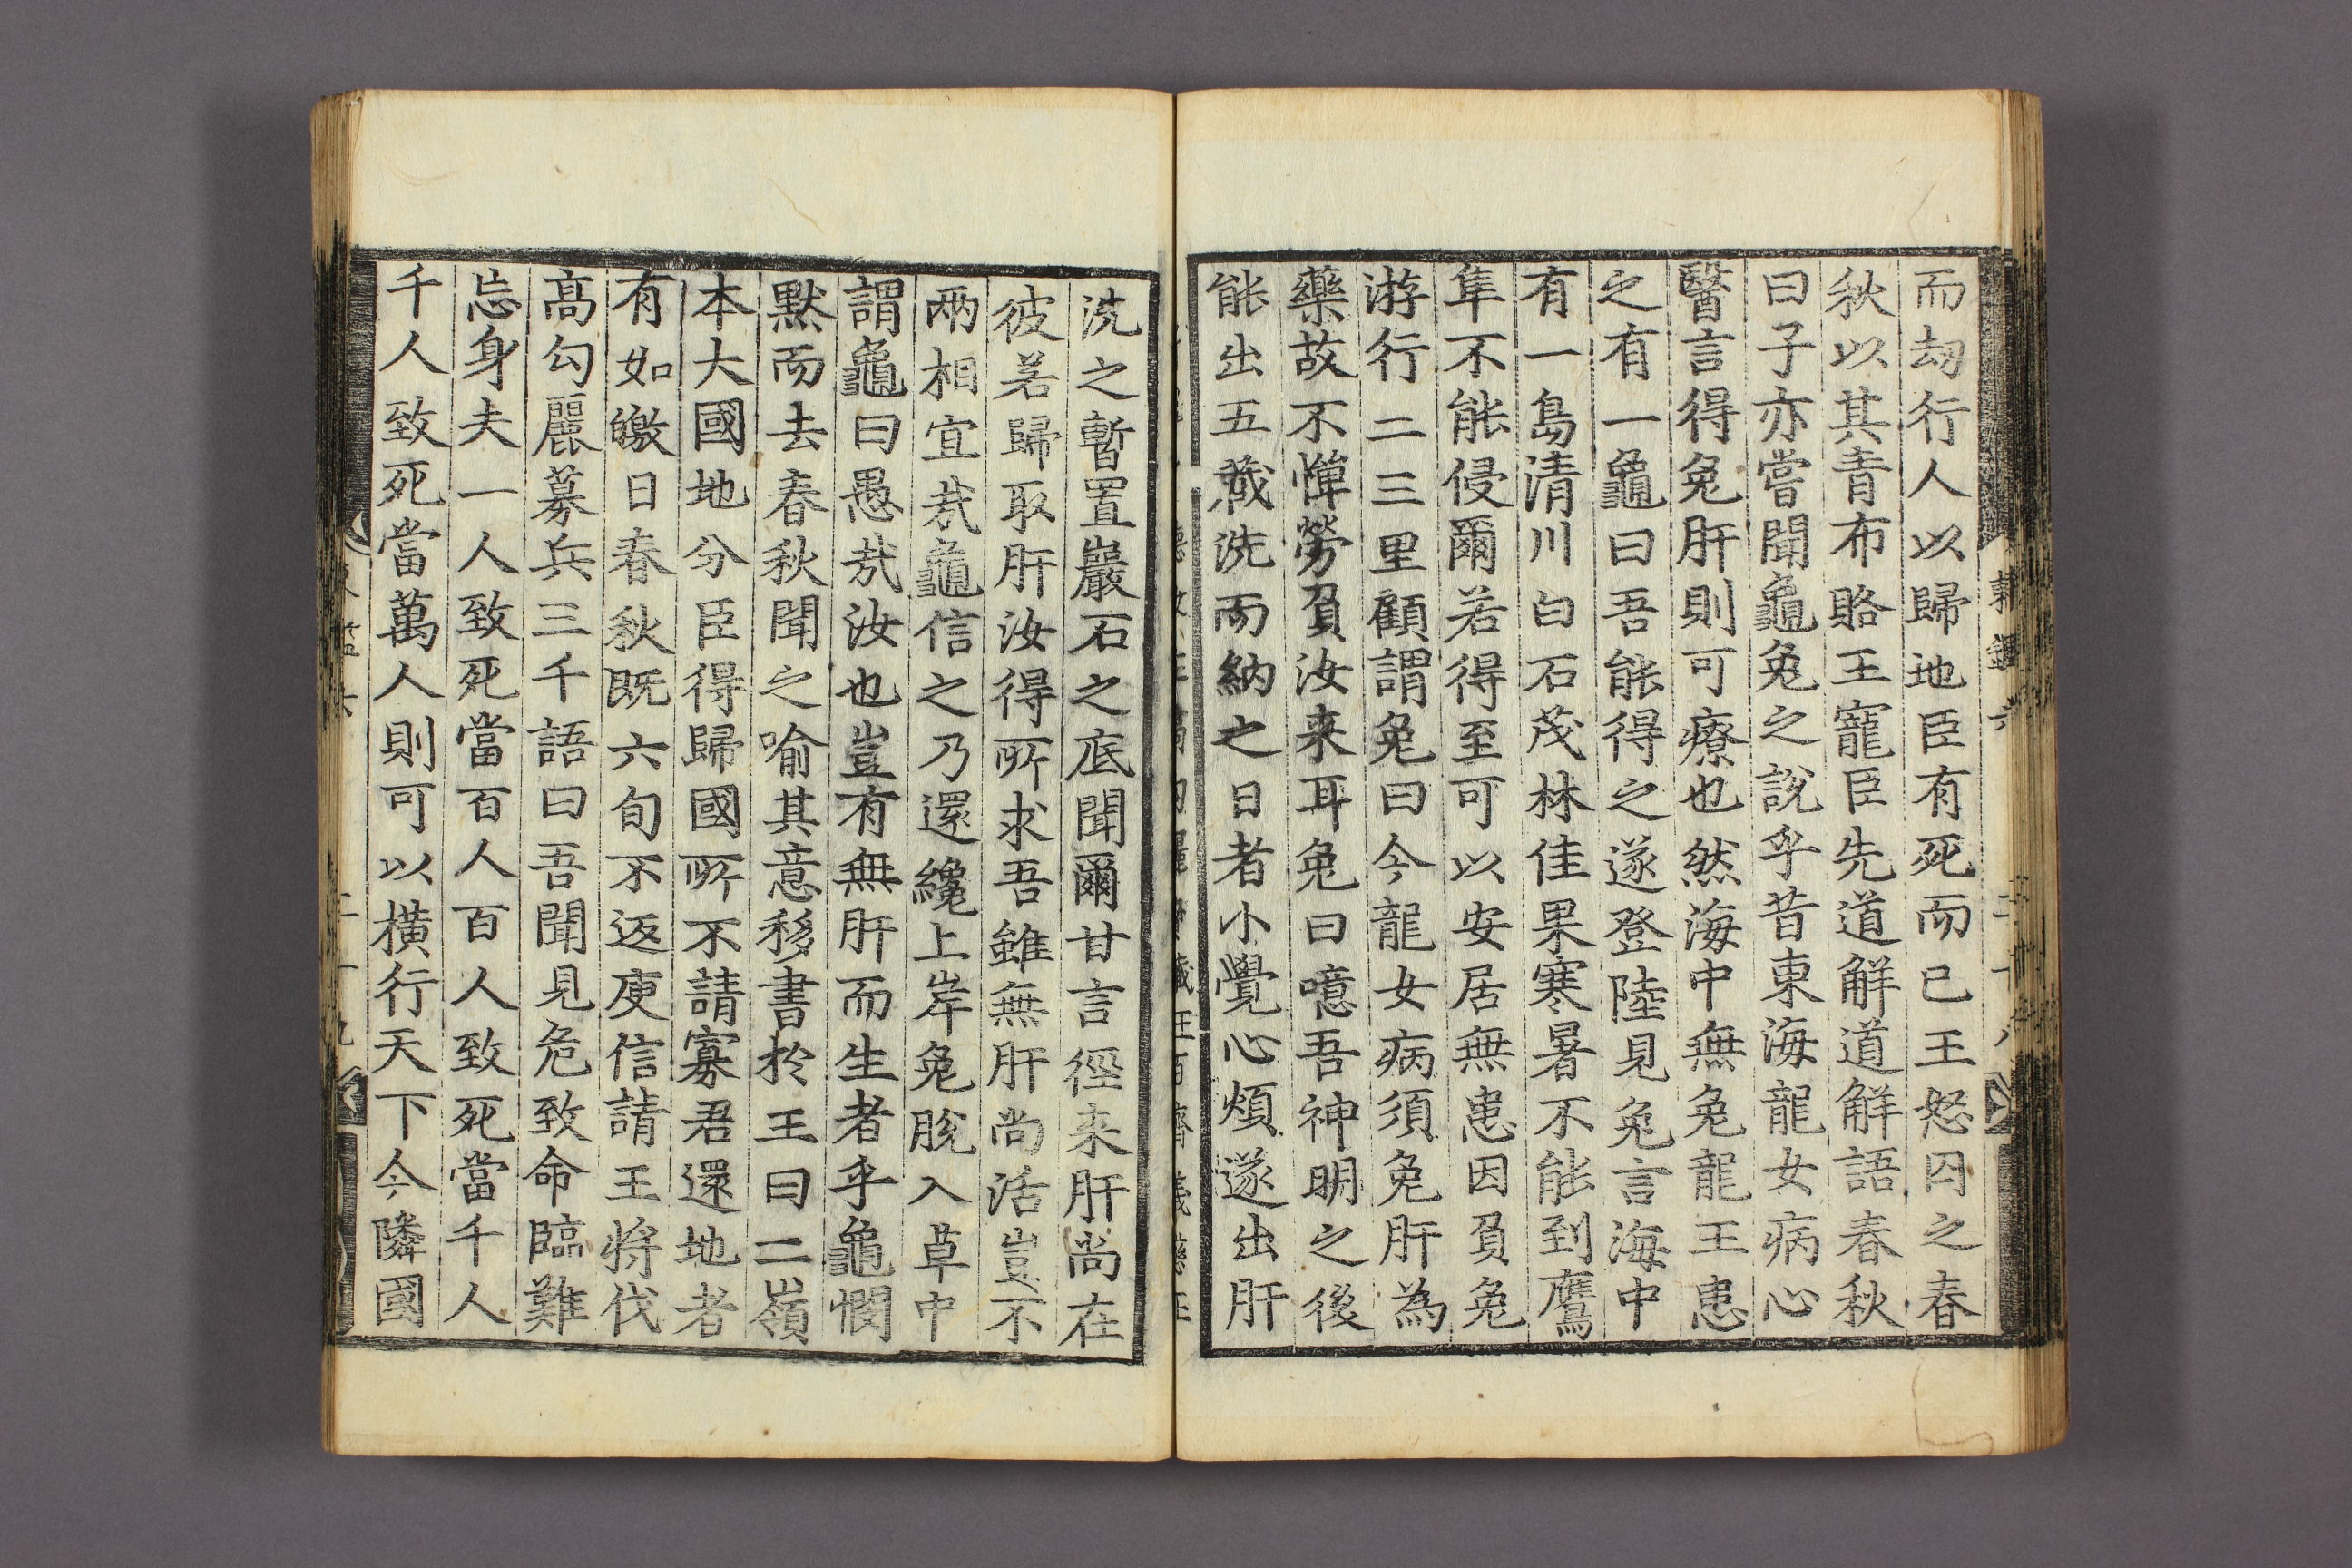 而劫行人以歸地臣有死而已王怒囚之春
秋以其青布賂王寵臣先道觧道觧語春秋
曰子亦嘗聞龜兔之說乎昔東海龍女病心
醫言得兔肝則可療也然海中無兔龍王患
之有一龜曰吾能得之遂登陸見兔言海中
有一島清川白石茂林佳果寒暑不能到鷹
隼不能侵爾若得至可以安居無患因負兔
游行二三里顧謂兔曰今龍女病須兔肝為
藥故不憚勞負汝来耳兔曰噫吾神明之後
能出五藏洗而納之日者小覺心煩遂出肝
洗之暫置巖石之底聞爾甘言徑来肝尚在
彼若歸取肝汝得所求吾雖無肝尚活豈不
兩相宜㢤龜信之乃還纔上岸兔脫入草中
謂龜曰愚㢤汝也豈有無肝而生者乎龜憫
默而去春秋聞之喻其意移書於王曰二嶺
本大國地分臣得歸國所不請寡君還地者
有如皦日春秋既六旬不返庾信請王將伐
髙勾麗募兵三千語曰吾聞見危致命臨難
忘身夫一人致死當百人百人致死當千人
千人致死當萬人則可以橫行天下今隣國